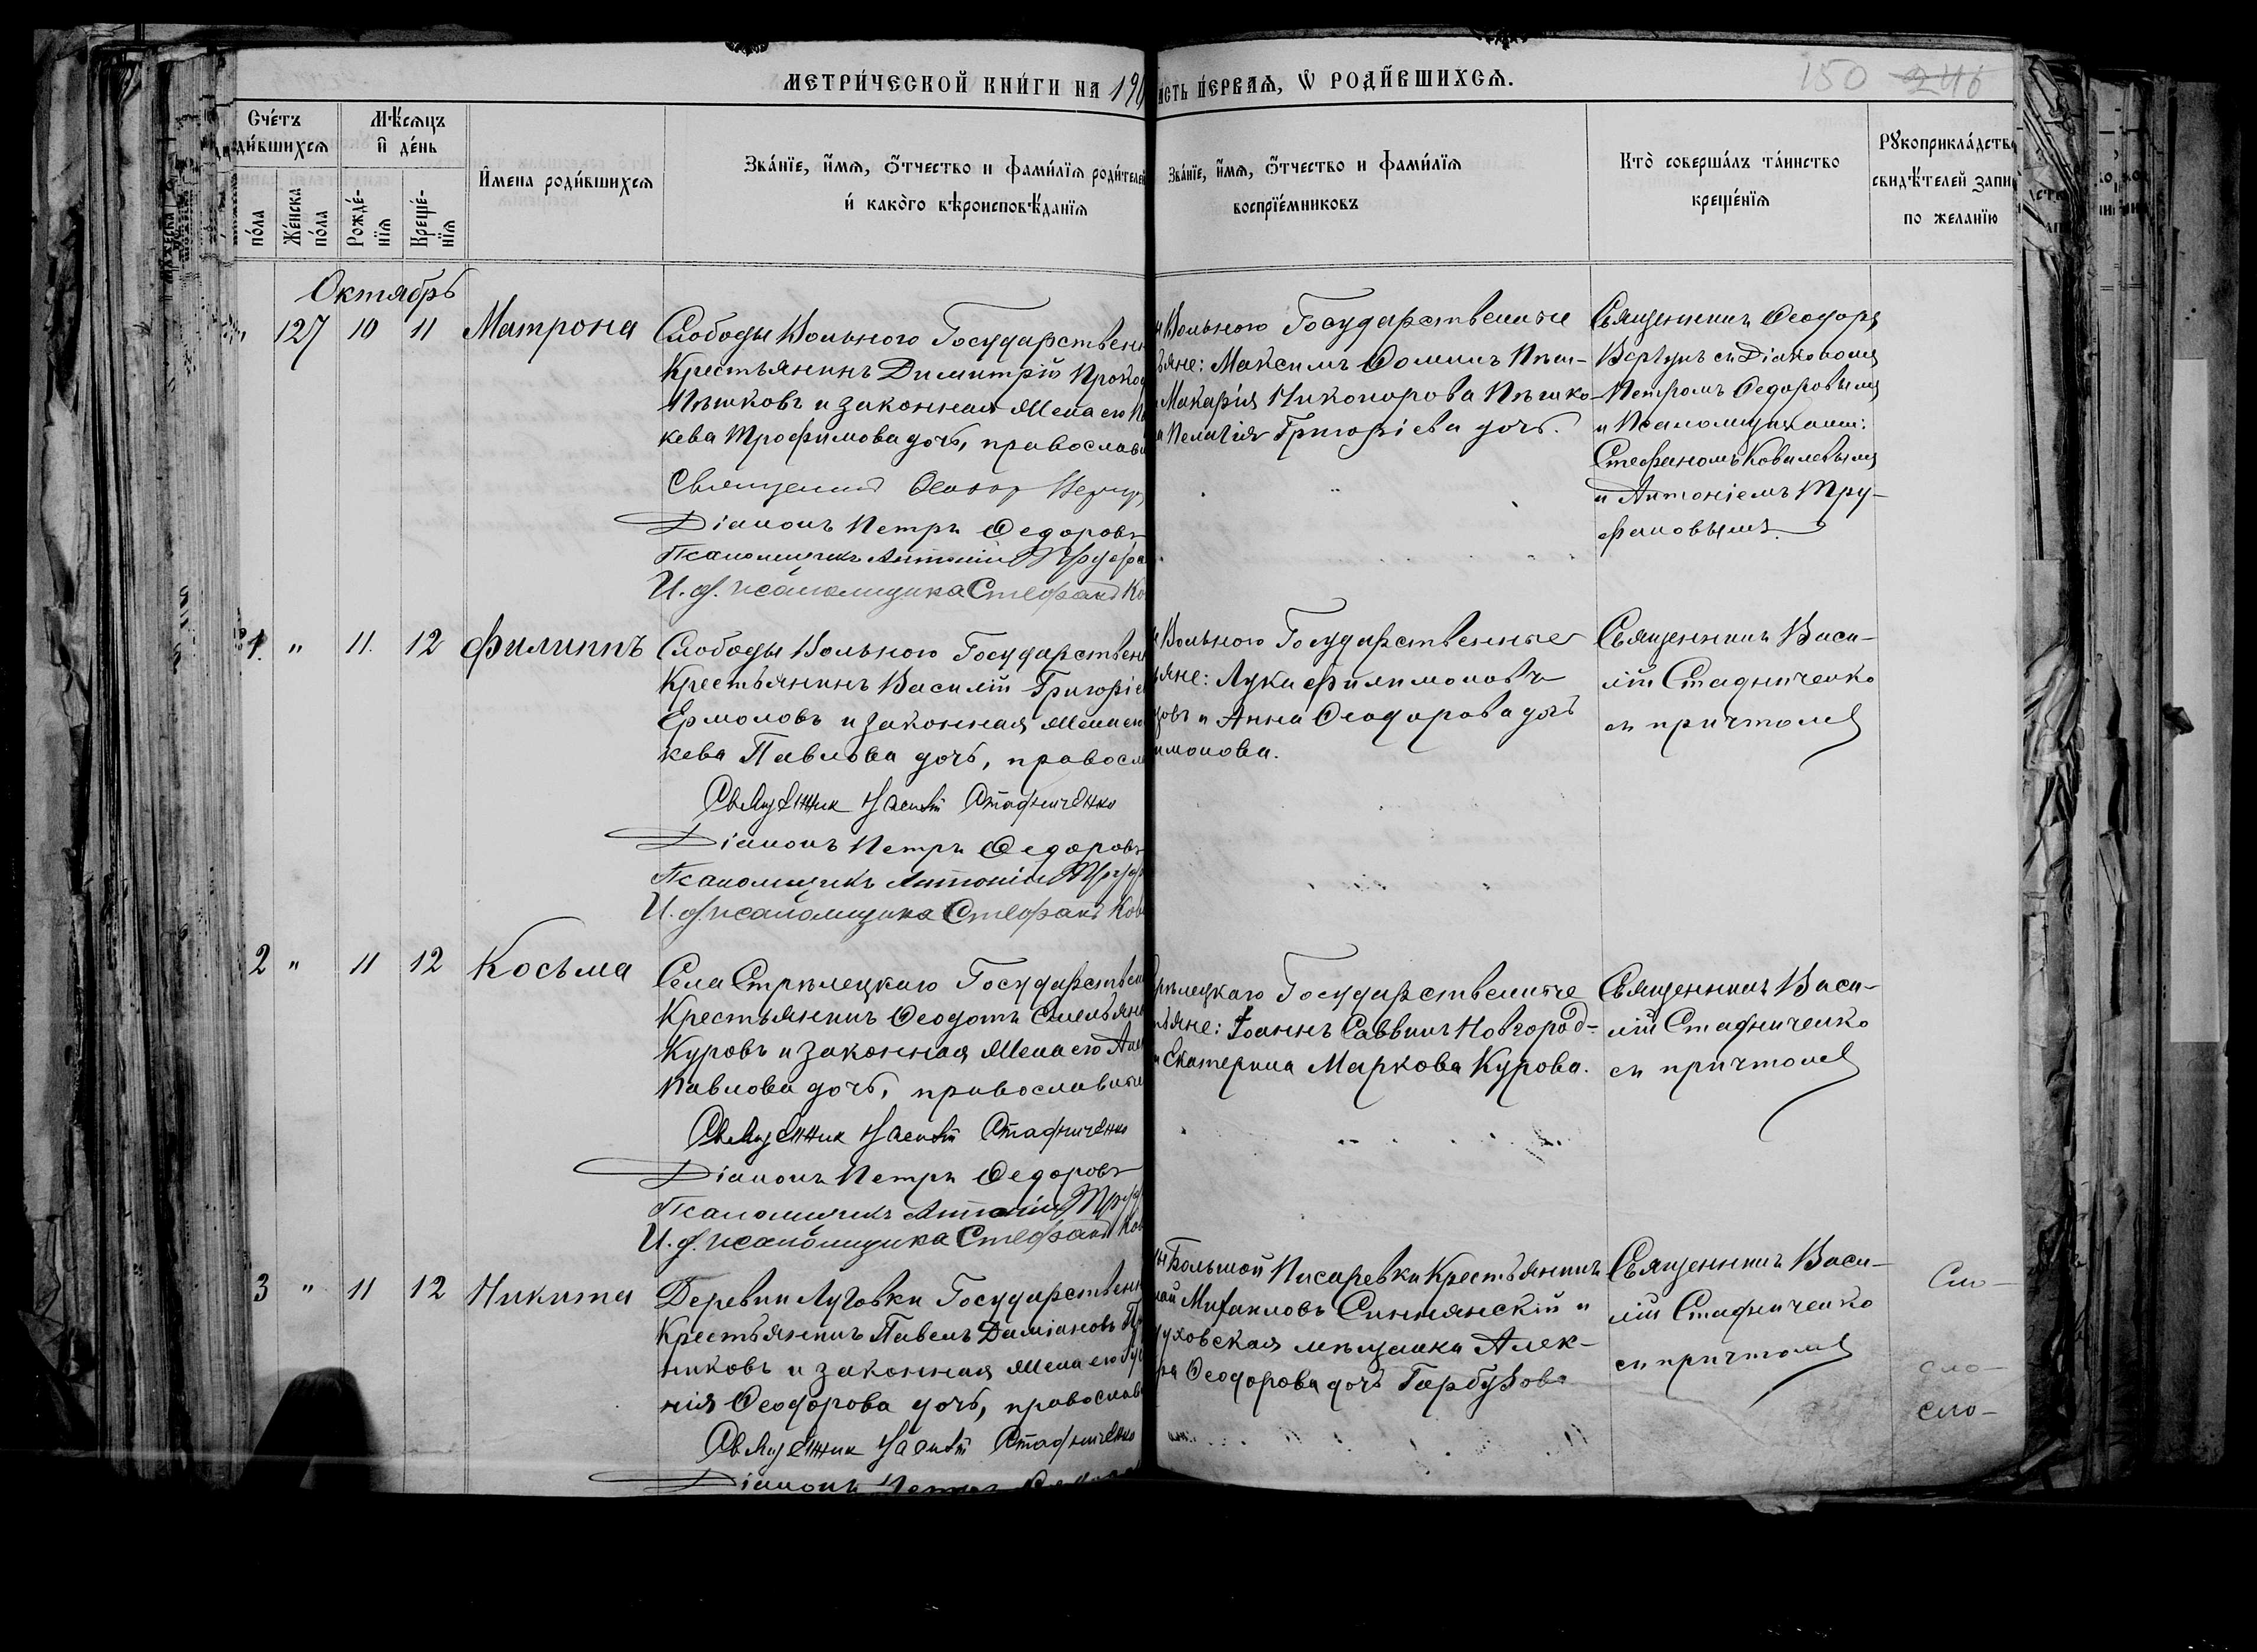 МЕТРИ́ЧЕСКОЙ КНИ́ГИ НА 190
ПЕ́РВАѦ, Ѡ РОДИ́ВШИХСѦ.
150 246
Сче́тъ
Мѣ́сѧцъ
и҆ де́нь
по́ла
Же́нска
по́ла
Рожде́-
нїѧ
Креще́-
нїѧ
И҆мена роди́вшихсѧ
Зва́нїе, и҆́мѧ, ѻ҆́тчество и фами́лїѧ роди́телей
и҆ како́го вѣроисповѣ́данїѧ
Зва́нїе, и҆́мѧ, ѻ҆́тчество и фами́лїѧ
воспрїе́мниковъ
Кто̀ соверша́лъ та́инство
креще́нїѧ
Рꙋкоприкла́дство
свидѣ́телей запи
по жела́нїю
Октябрь
127 10 11 Матрона
Слободы Вольнаго Государствен
Крестьянинъ Димитрій Проко
Пѣшковъ и законная жена его Па
кева Трофимова дочь, православ
Священникъ Ѳеодор Вертун
Діаконъ Петръ Ѳедоровъ
Псаломщикъ Антоній Труфа
И. д. псаломщика Стефанъ Ко
Вольнаго Государственные
яне: Максимъ Ѳоминъ Пѣш-
Макарія Никонорова Пѣшко-
Пелагія Григоріева дочь.
Священникъ Ѳеодоръ
Вертунъ съ Діакономъ
Петромъ Ѳедоровымъ
и Псаломщиками:
Стефаномъ Ковалевымъ
и Антоніемъ Тру-
фановымъ.
1. " 11. 12 Филиппъ
Слободы Вольнаго Государствен
Крестьянинъ Василій Григоріе
Ермоловъ и законная жена его
кева Павлова дочь, правосл
Священник Василій Стадниченко
Діаконъ Петръ Ѳедоровъ
Псаломщикъ Антоній Труф
И. д. псаломщика Стефанъ Ков
Вольнаго Государственные
яне: Лука Филимоновъ
и Анна Ѳеодорова дочь
имонова.
Священникъ Васи-
лій Стадниченко
съ причтомъ
2 " 11 12 Косьма
Села Стрѣлецкаго Государствен
Крестьянинъ Ѳеодотъ Емельян
Куровъ и законная жена его
Павлова дочь, православные
Священник Василій Стадниченко
Діаконъ Петръ Ѳедоровъ
Псаломщикъ Антоній Труф
И. д. псаломщика Стефанъ Ков
рѣлецкаго Государственные
яне: Іоаннъ Саввинъ Новгород-
и Екатерина Маркова Курова.
Священникъ Васи-
лій Стадниченко
съ причтомъ
3 " 11 12 Никита
Деревни Луговки Государствен
Крестьянинъ Павелъ Даміановъ
никовъ и законная жена его
нія Ѳеодорова дочь, православ
Священник Василій Стадниченко
Діаконъ Петръ
Большой Писаревки Крестьянинъ
Михаиловъ Синянскій и
уховская мѣщанка Алек-
Ѳеодорова дочь Гарбузова
Священникъ Васи-
лій Стадниченко
съ причтомъ